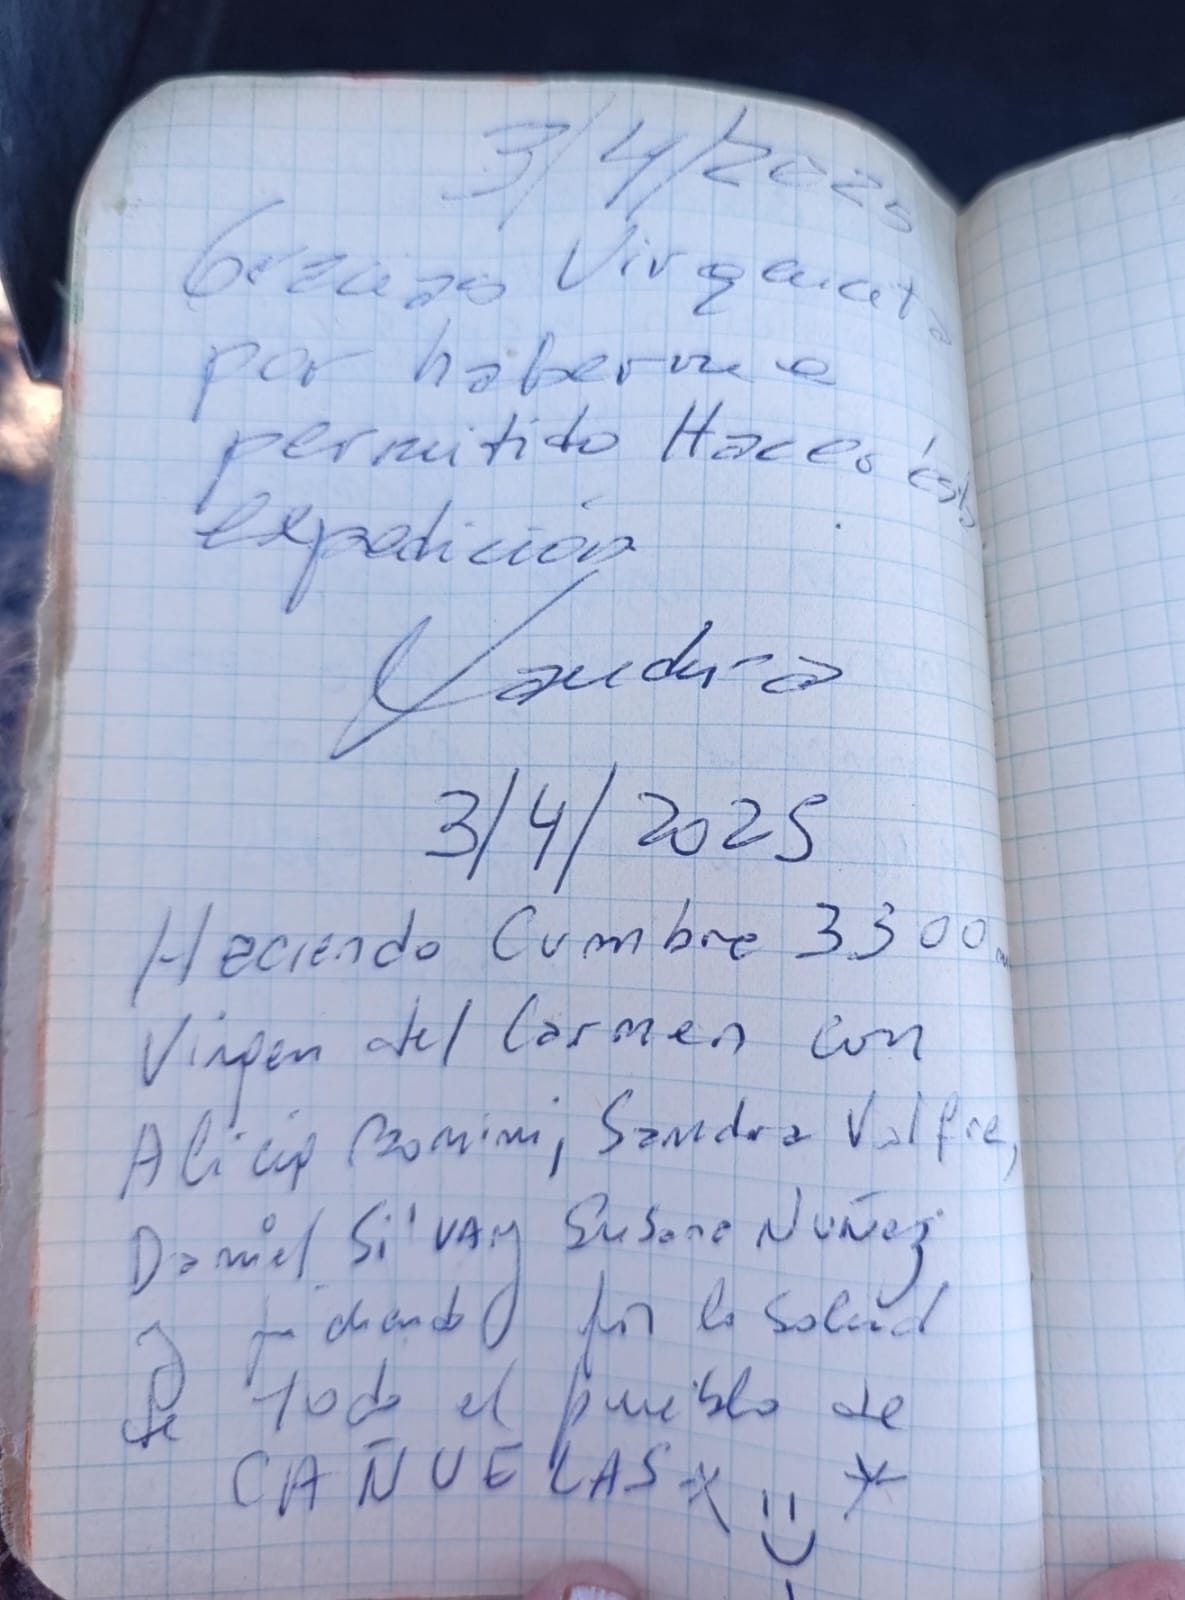 3/4/2025
Gracias Virgencita
por haberme
permitido Hacer ésta
expedición
Sandra
3/4/2025
Haciendo Cumbre 3300 m
Virgen del Carmen con
Alicia Momini, Sandra Valfre,
Daniel Silva y Susana NuÑez
y pidiendo por la Salud
de todo el pueblo de
CAÑUELAS